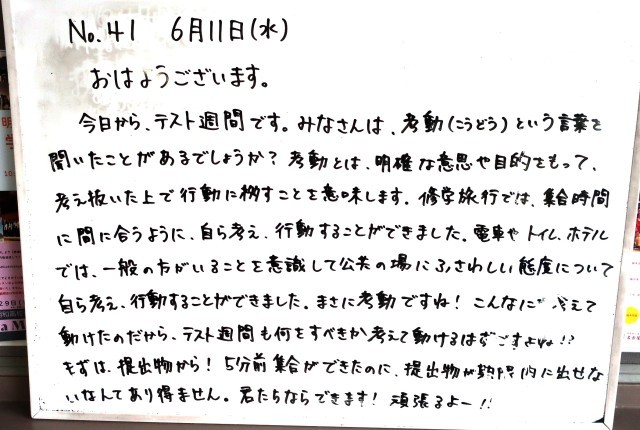 No.41 6月11日(水)
おはようございます。
今日から、テスト週間です。みなさんは、考動(こうどう)という言葉を
聞いたことがあるでしょうか？考動とは、明確な意思や目的をもって、
考え抜いた上で行動に移すことを意味します。修学旅行では、集合時間
に間に合うように、自ら考え、行動することができました。電車やトイレ、ホテル
では、一般の方がいることを意識して公共の場にふさわしい態度について
自ら考え、行動することができました。まさに考動ですね！こんなに考えて
動けたのだから、テスト週間も何をすべきか考えて動けるはずですよね!?
まずは、提出物から！5分前集合ができたのに、提出物が期限内に出せな
いなんてあり得ません。君たちならできます！頑張るよー!!